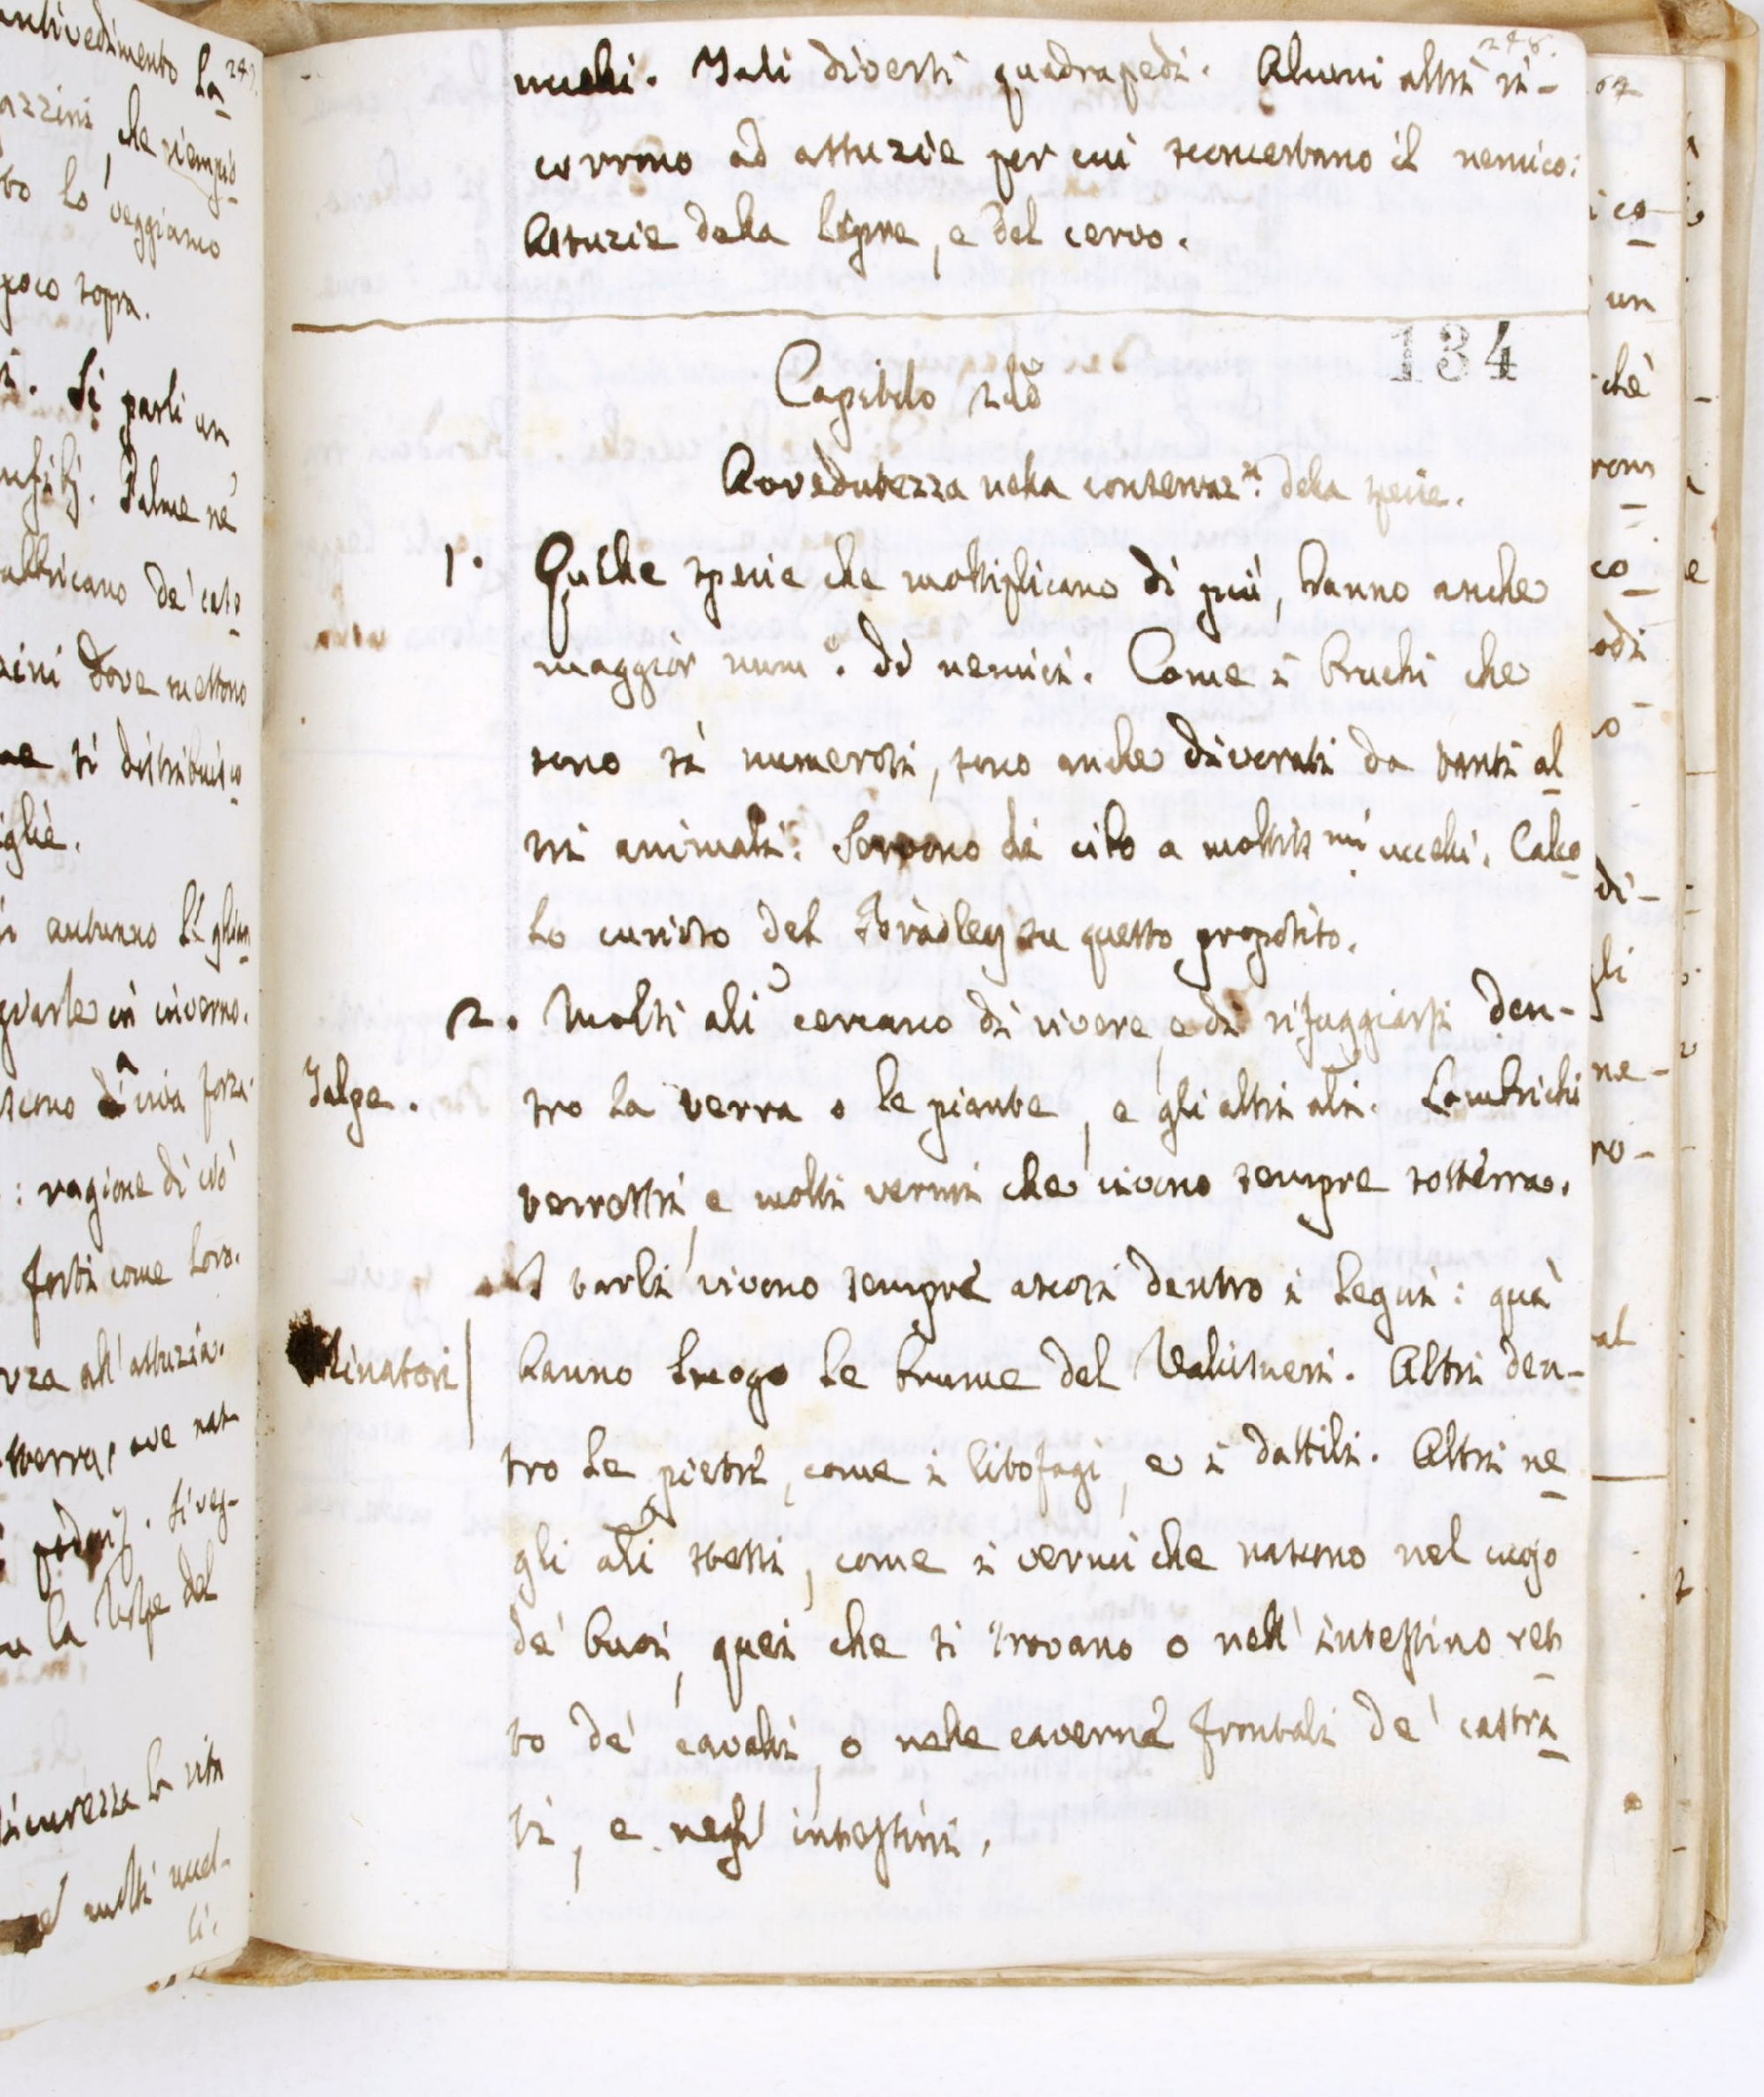 248.
uccelli. Tali diversi quadrupedi. Alcuni altri ri-
corrono ad astuzie per cui sconcertano il nemico:
Astuzie della lepre, e del cervo.
134
Capitolo 2do
Avvedutezza nella conservaz.e della specie.
1. Quelle specie che moltiplicano di più, hanno anche
maggior num.o di nemici. Come i bruchi che
sono sì numerosi, sono anche divorati da tanti al
tri animali. Servono di cibo a moltiss.mi uccelli. Calco
lo curioso del Bradley su questo proposito.
2. Molti ali cercano di vivere, e di rifuggiarsi den-
Talpe. tro la terra o le piante, e gli altri ali. Lombrichi
terrestri, e molti vermi che vivono sempre sotterra.
I tarli vivono sempre ascosi dentro i legni: quì
Minatori hanno luogo le brume del Valisneri. Altri den-
tro le pietre, come i litofagi, e i dattili. Altri ne
gli ali stessi, come i vermi che nascono nel cuojo
de' buoi, quei che si trovano o nell' intestino ret
to de' cavalli, o nelle caverne frontali de' castra
ti, e negl' intestini.
antivedimento la
247.
che riempio
lo veggiamo
poco sopra.
Si parli un
dove mettono
si distribuisco
autunno
in inverno.
forza.
: ragione di ciò
forti come loro.
all' astuzia.
la Volpe del
sicurezza la vita
molti uccel-
li.